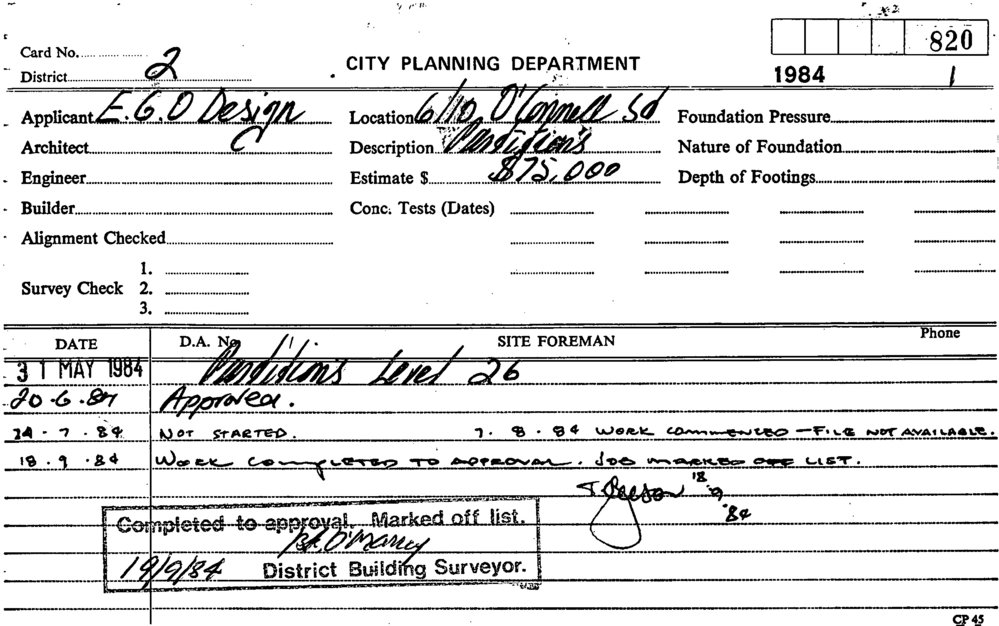 Card No.
820
District 2
CITY PLANNING DEPARTMENT
1984 1
Applicant E.G.O Design Location 6/10 O'Connell Sd Foundation Pressure
Architect Description Partitions Nature of Foundation
Engineer Estimate $ $75,000 Depth of Footings
Builder Conc. Tests (Dates)
Alignment Checked
1.
Survey Check 2.
3.
DATE D.A. No. SITE FOREMAN Phone
31 MAY 1984 Partitions Level 26
20.6.84 Approved.
24.7.84 NOT STARTED. 7.8.84 WORK COMMENCED - FILE NOT AVAILABLE.
18.9.84 WORK COMPLETED TO APPROVAL. JOB MARKED OFF LIST.
18.9.84
Completed to approval. Marked off list.
19/9/84 District Building Surveyor.
CP 45